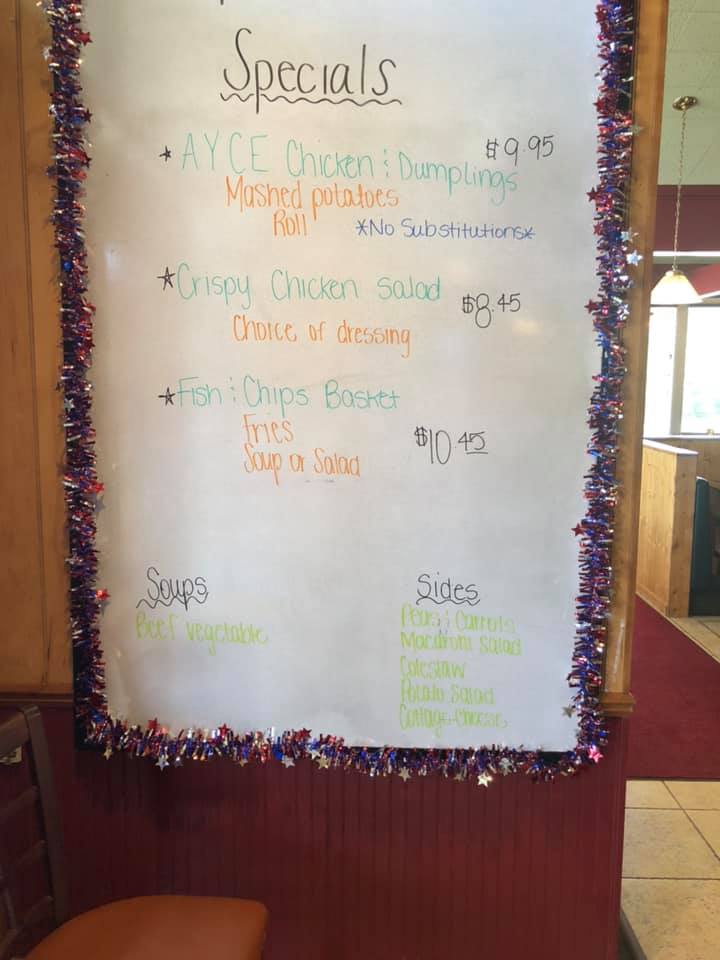 Specials
* AYCE Chicken & Dumplings $9.95
Mashed potatoes
Roll *No Substitutions*
* Crispy Chicken Salad $8.45
Choice of dressing
* Fish & Chips Basket
Fries $10.45
Soup or Salad
Soups
Beef vegetable
Sides
Peas & Carrots
Macaroni Salad
Coleslaw
Potato Salad
Cottage Cheese